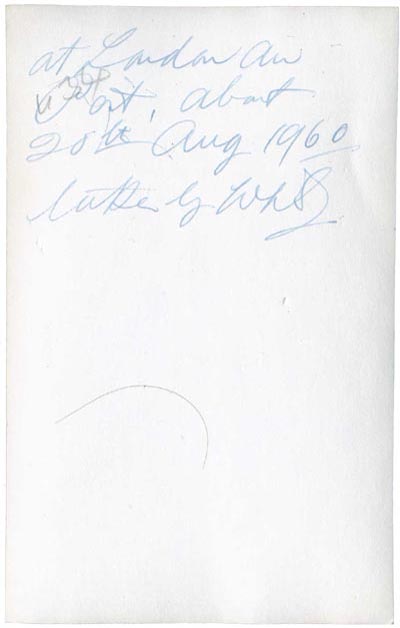 at London Air
Port, about
20th Aug 1960
taken by